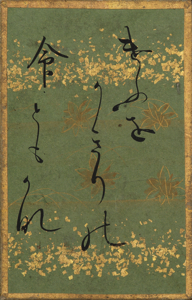 けふを
かきりの
命ともかな